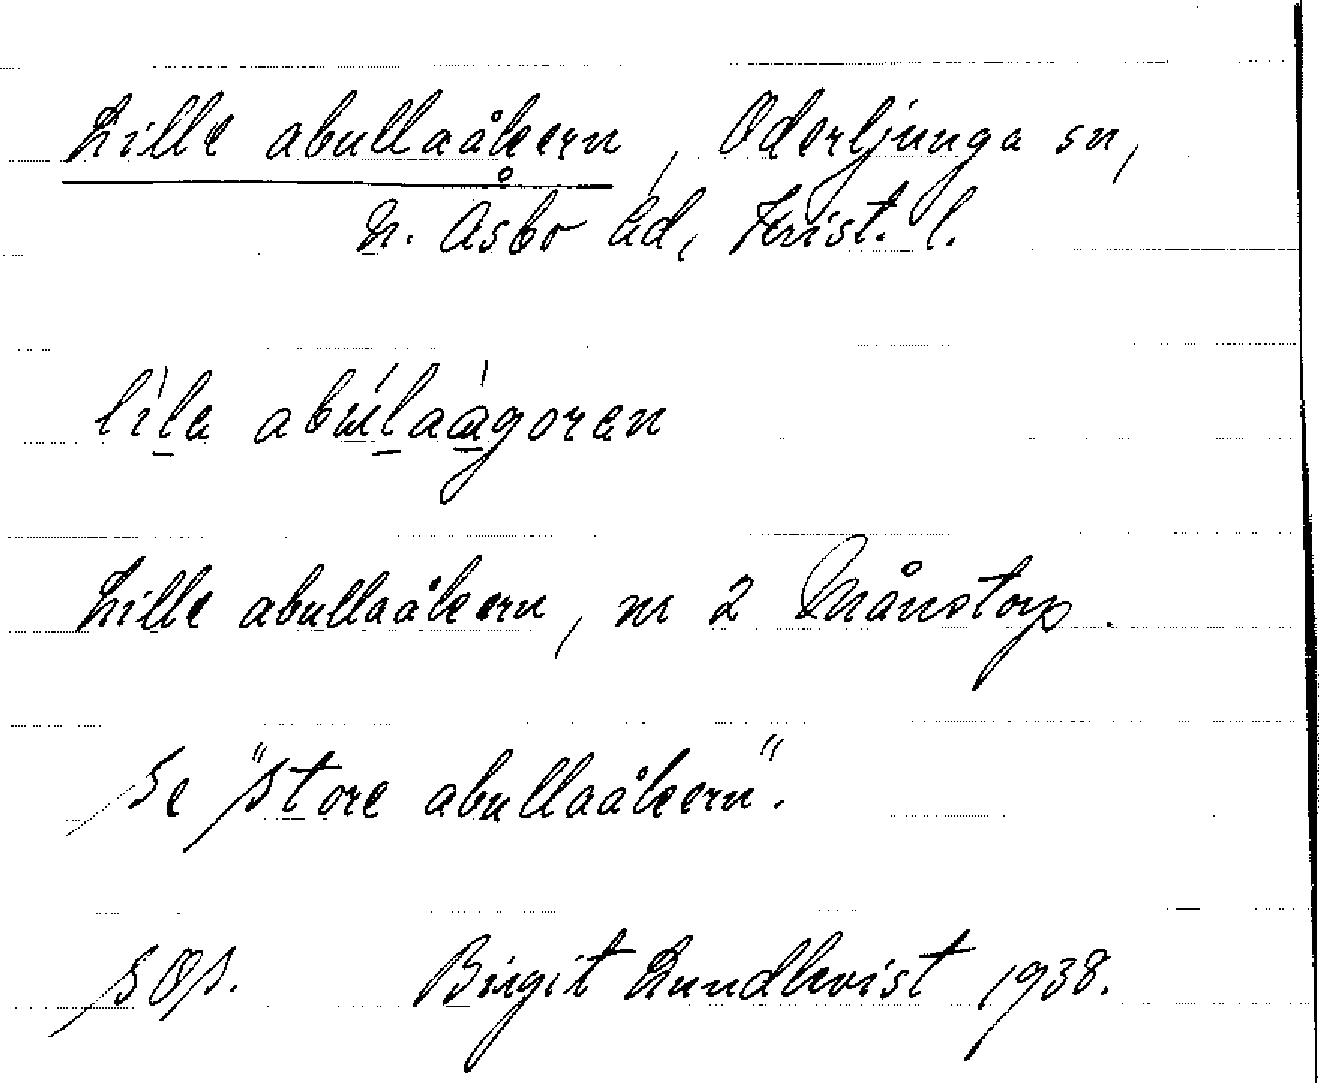 Lille abullaåkern, Oderljunga sn,
N. Åsbo hd, Krist. l.
lila abulaågoren
Lille abullaåkern, nr 2 Månstorp.
Se "Store abullaåkern".
Birgit Lundkvist 1938.